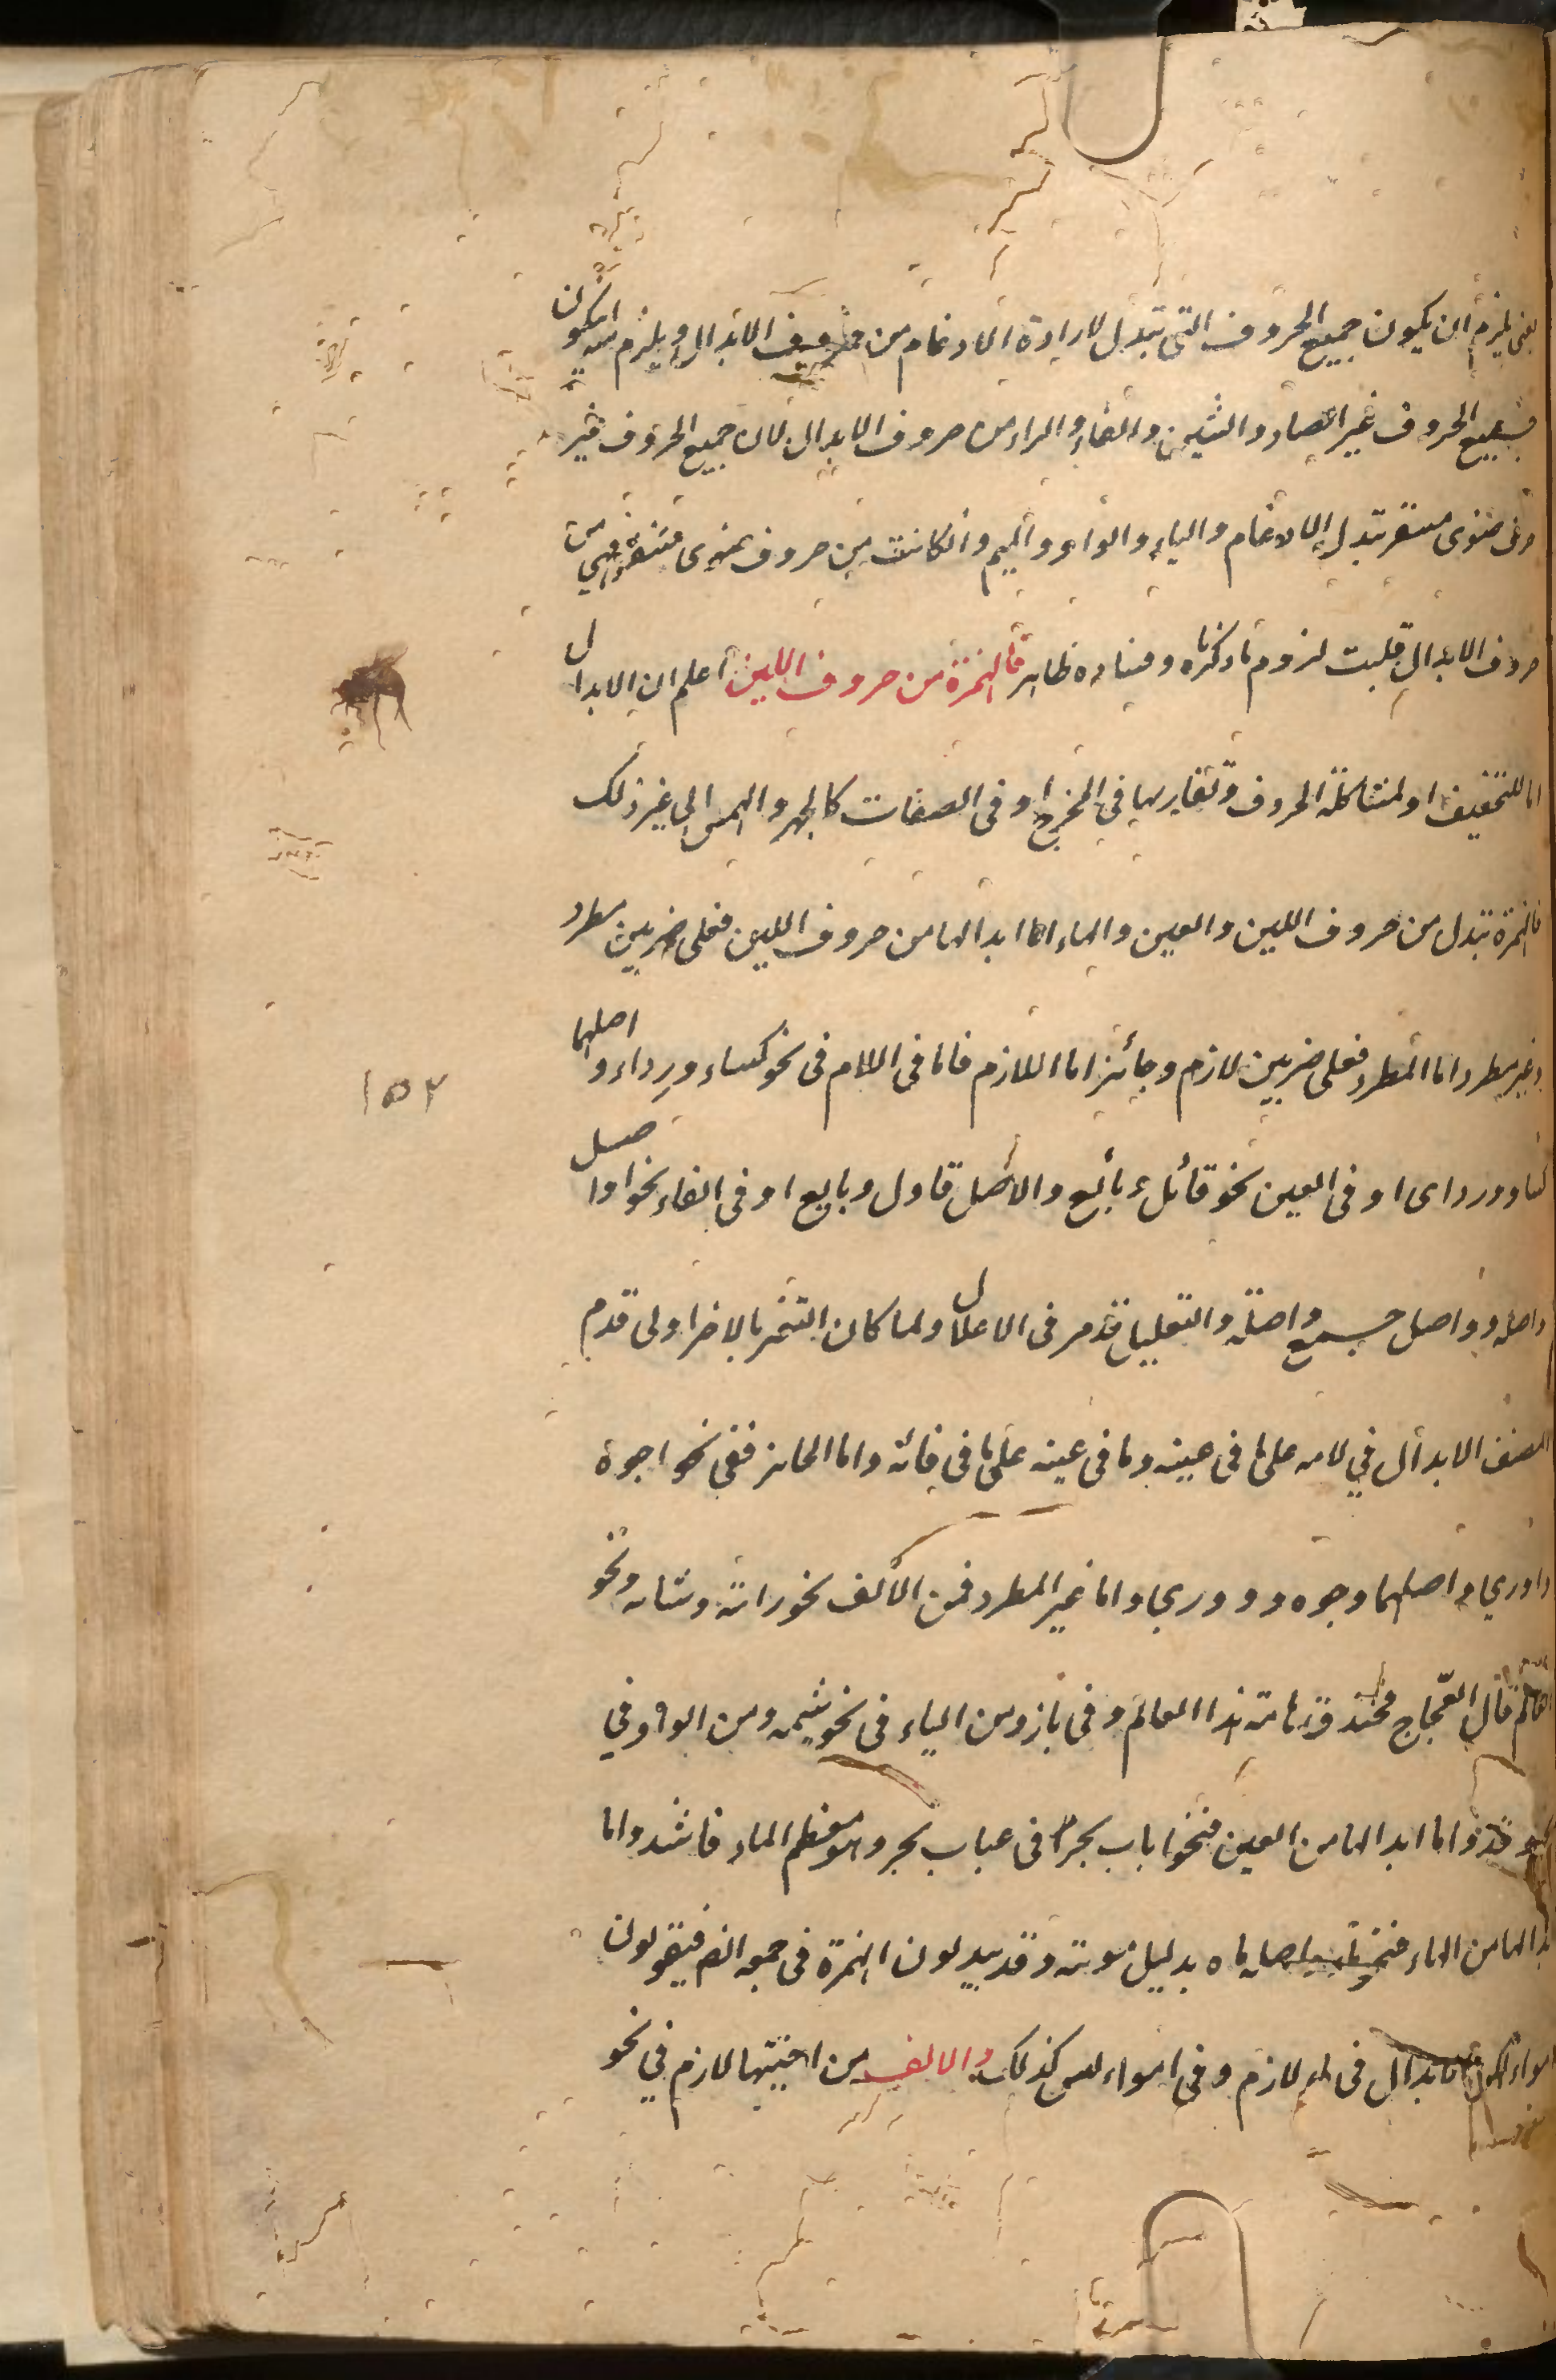 يعنى يلزم ان يكون جميع الحروف التى تبدل لارادة الادغام من حروف الابدال ويلزم منه ان يكون
جميع الحروف غير الصاد والشين والفاء والراء من حروف الابدال لان جميع الحروف غير
حروف ضوى مشفر تبدل للادغام والياء والواو والميم وان كانت من حروف ضوى مشفر فهى من
حروف الابدال قلبت لزوم ما ذكرناه وفساده ظاهر فالهمزة من حروف اللين اعلم ان الابدال
اما للتخفيف او لمشاكلة الحروف وتقاربها فى المخرج او فى الصفات كالجهر والهمس الى غير ذلك
فالهمزة تبدل من حروف اللين والعين والهاء اما ابدالها من حروف اللين فعلى ضربين مطرد
وغير مطرد اما المطرد فعلى ضربين لازم وجائز اما اللازم فاما فى اللام فى نحو كساء ورداء واصلهما
كساو ورداى او فى العين نحو قائل وبائع والاصل قاول وبايع او فى الفاء نحو اواصل
واصله وواصل جمع واصلة والتعليل قد مر فى الاعلال ولما كان التغير بالاخر اولى قدم
المصنف الابدال فى لامه على ما فى عينه وما فى عينه على ما فى فائه واما الجائز ففى نحو اجوه
واورى واصلهما وجوه وو ورى واما غير المطرد فمن الالف نحو دابة وشابة ونحو
العالم قال العجاج فخندف هامة هذا العالم وفى باز ومن الياء فى نحو شيمه ومن الواو فى
نحو مؤقد واما ابدالها من العين فنحو اباب بحر فى عباب بحر وهو معظم الماء فاشذ واما
ابدالها من الهاء فنحو ماء اصله ماه بدليل مويه وقد يبدلون الهمزة فى جمعه ايضا فيقولون
امواء لكن الابدال فى ماء لازم وفى امواء ليس كذلك والالف من اختيها لازم فى نحو
١٥٢